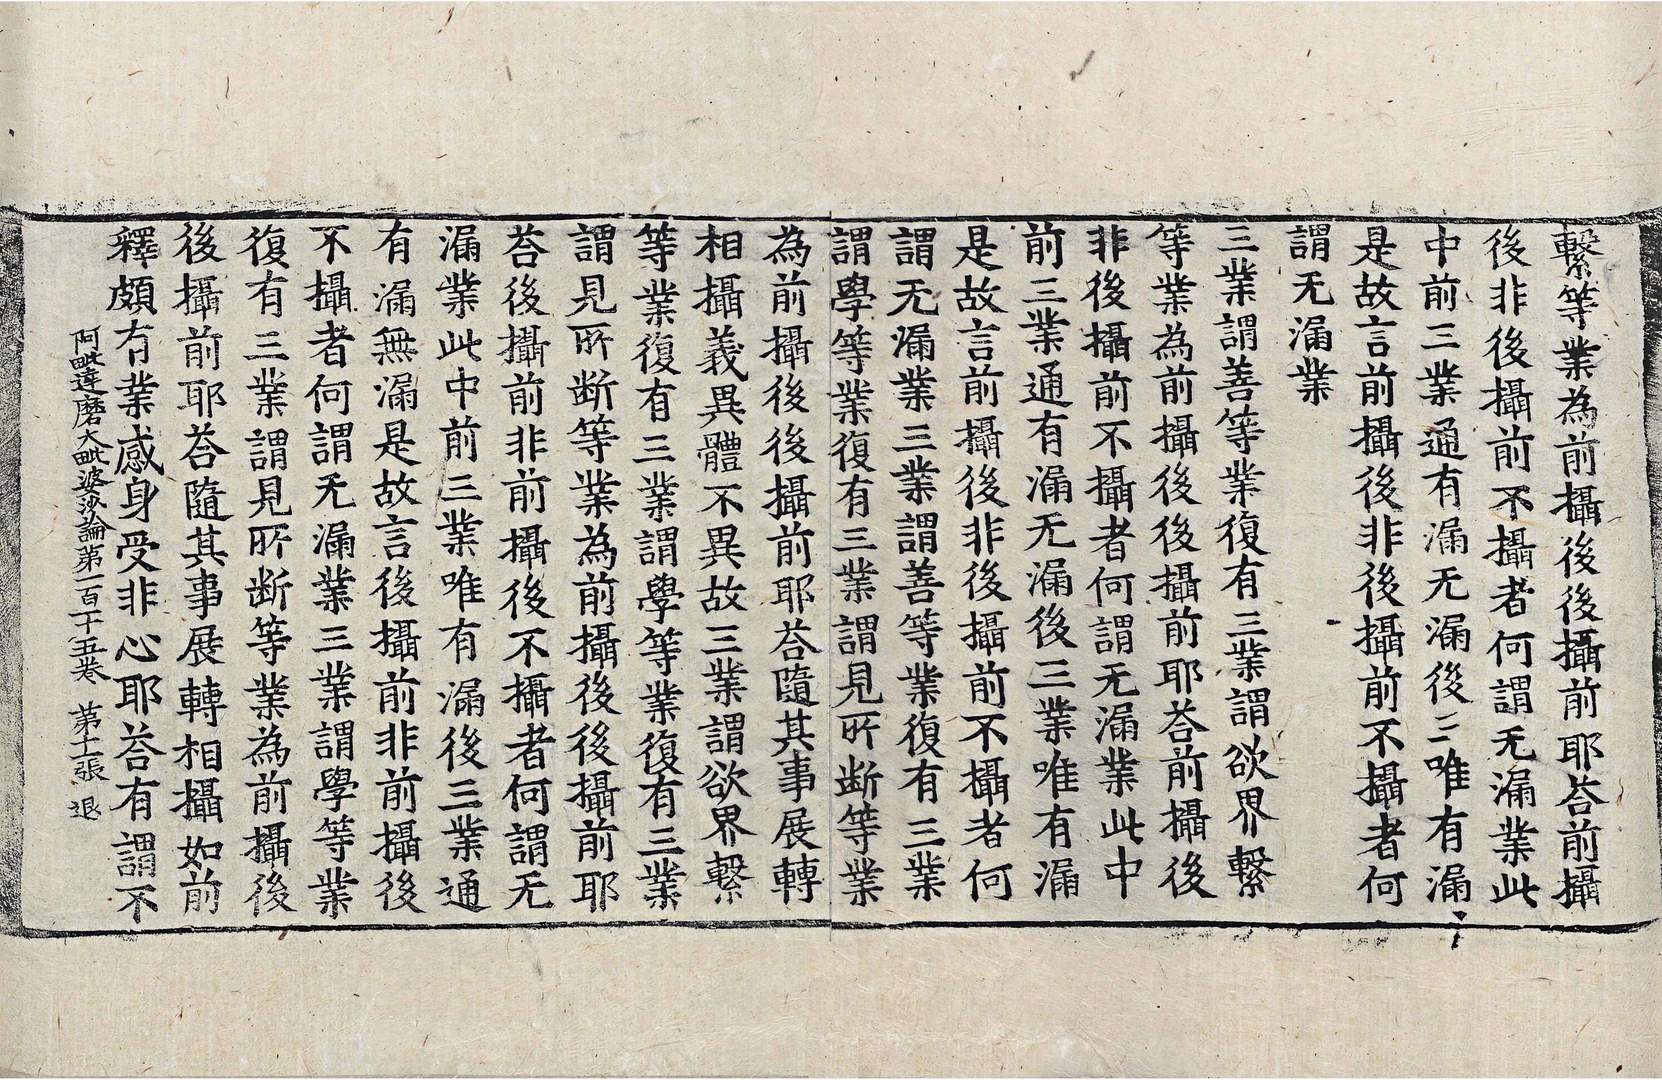 繫等業為前攝後後攝前耶荅前攝
後非後攝前不攝者何謂无漏業此
中前三業通有漏无漏後三唯有漏
是故言前攝後非後攝前不攝者何
謂无漏業
三業謂善等業復有三業謂欲界繫
等業為前攝後後攝前耶荅前攝後
非後攝前不攝者何謂无漏業此中
前三業通有漏无漏後三業唯有漏
是故言前攝後非後攝前不攝者何
謂无漏業三業謂善等業復有三業
謂學等業復有三業謂見所断等業
為前攝後後攝前耶荅隨其事展轉
相攝義異體不異故三業謂欲界繫
等業復有三業謂學等業復有三業
謂見所断等業為前攝後後攝前耶
荅後攝前非前攝後不攝者何謂无
漏業此中前三業唯有漏後三業通
有漏無漏是故言後攝前非前攝後
不攝者何謂无漏業三業謂學等業
復有三業謂見所断等業為前攝後
後攝前耶荅隨其事展轉相攝如前
釋頗有業感身受非心耶荅有謂不
阿毗達磨大毗婆沙論第一百一十五卷 第十一張 退